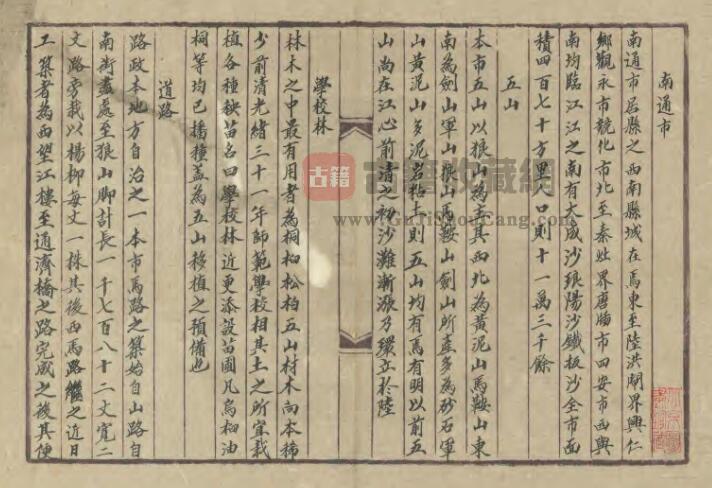 南通市
南通市居縣之西南縣城在焉東至陸洪閘界興仁
鄉觀永市競化市北至秦竈界唐閘市四安市西與
南均臨江江之南有大成沙琅陽沙鐵板沙全市面
積四百七十方里人口則十一萬三千餘
五山
本市五山以狼山為主其西北為黃泥山馬鞍山東
南為劍山軍山狼山馬鞍山劍山所產多為砂石軍
山黃泥山多泥岩粘土則五山均有焉有明以前五
山尚在江心前清之初沙灘漸漲乃環立於陸
學校林
林木之中最有用者為桐桕松柏五山材木向本稀
少前清光緒三十一年師範學校相其土之所宜栽
植各種秧苗名曰學校林近更添設苗圃凡烏桕油
桐等均已播種蓋為五山移植之預備也
道路
路政本地方自治之一本市馬路之築始自山路自
南街盡處至狼山腳計長一千七百八十二丈寬二
丈路旁栽以楊柳每丈一株其後西馬路繼之近日
工築者為西望江樓至通濟橋之路完成之後其便
古籍
古書收藏網
www.GuJiShouCang.com